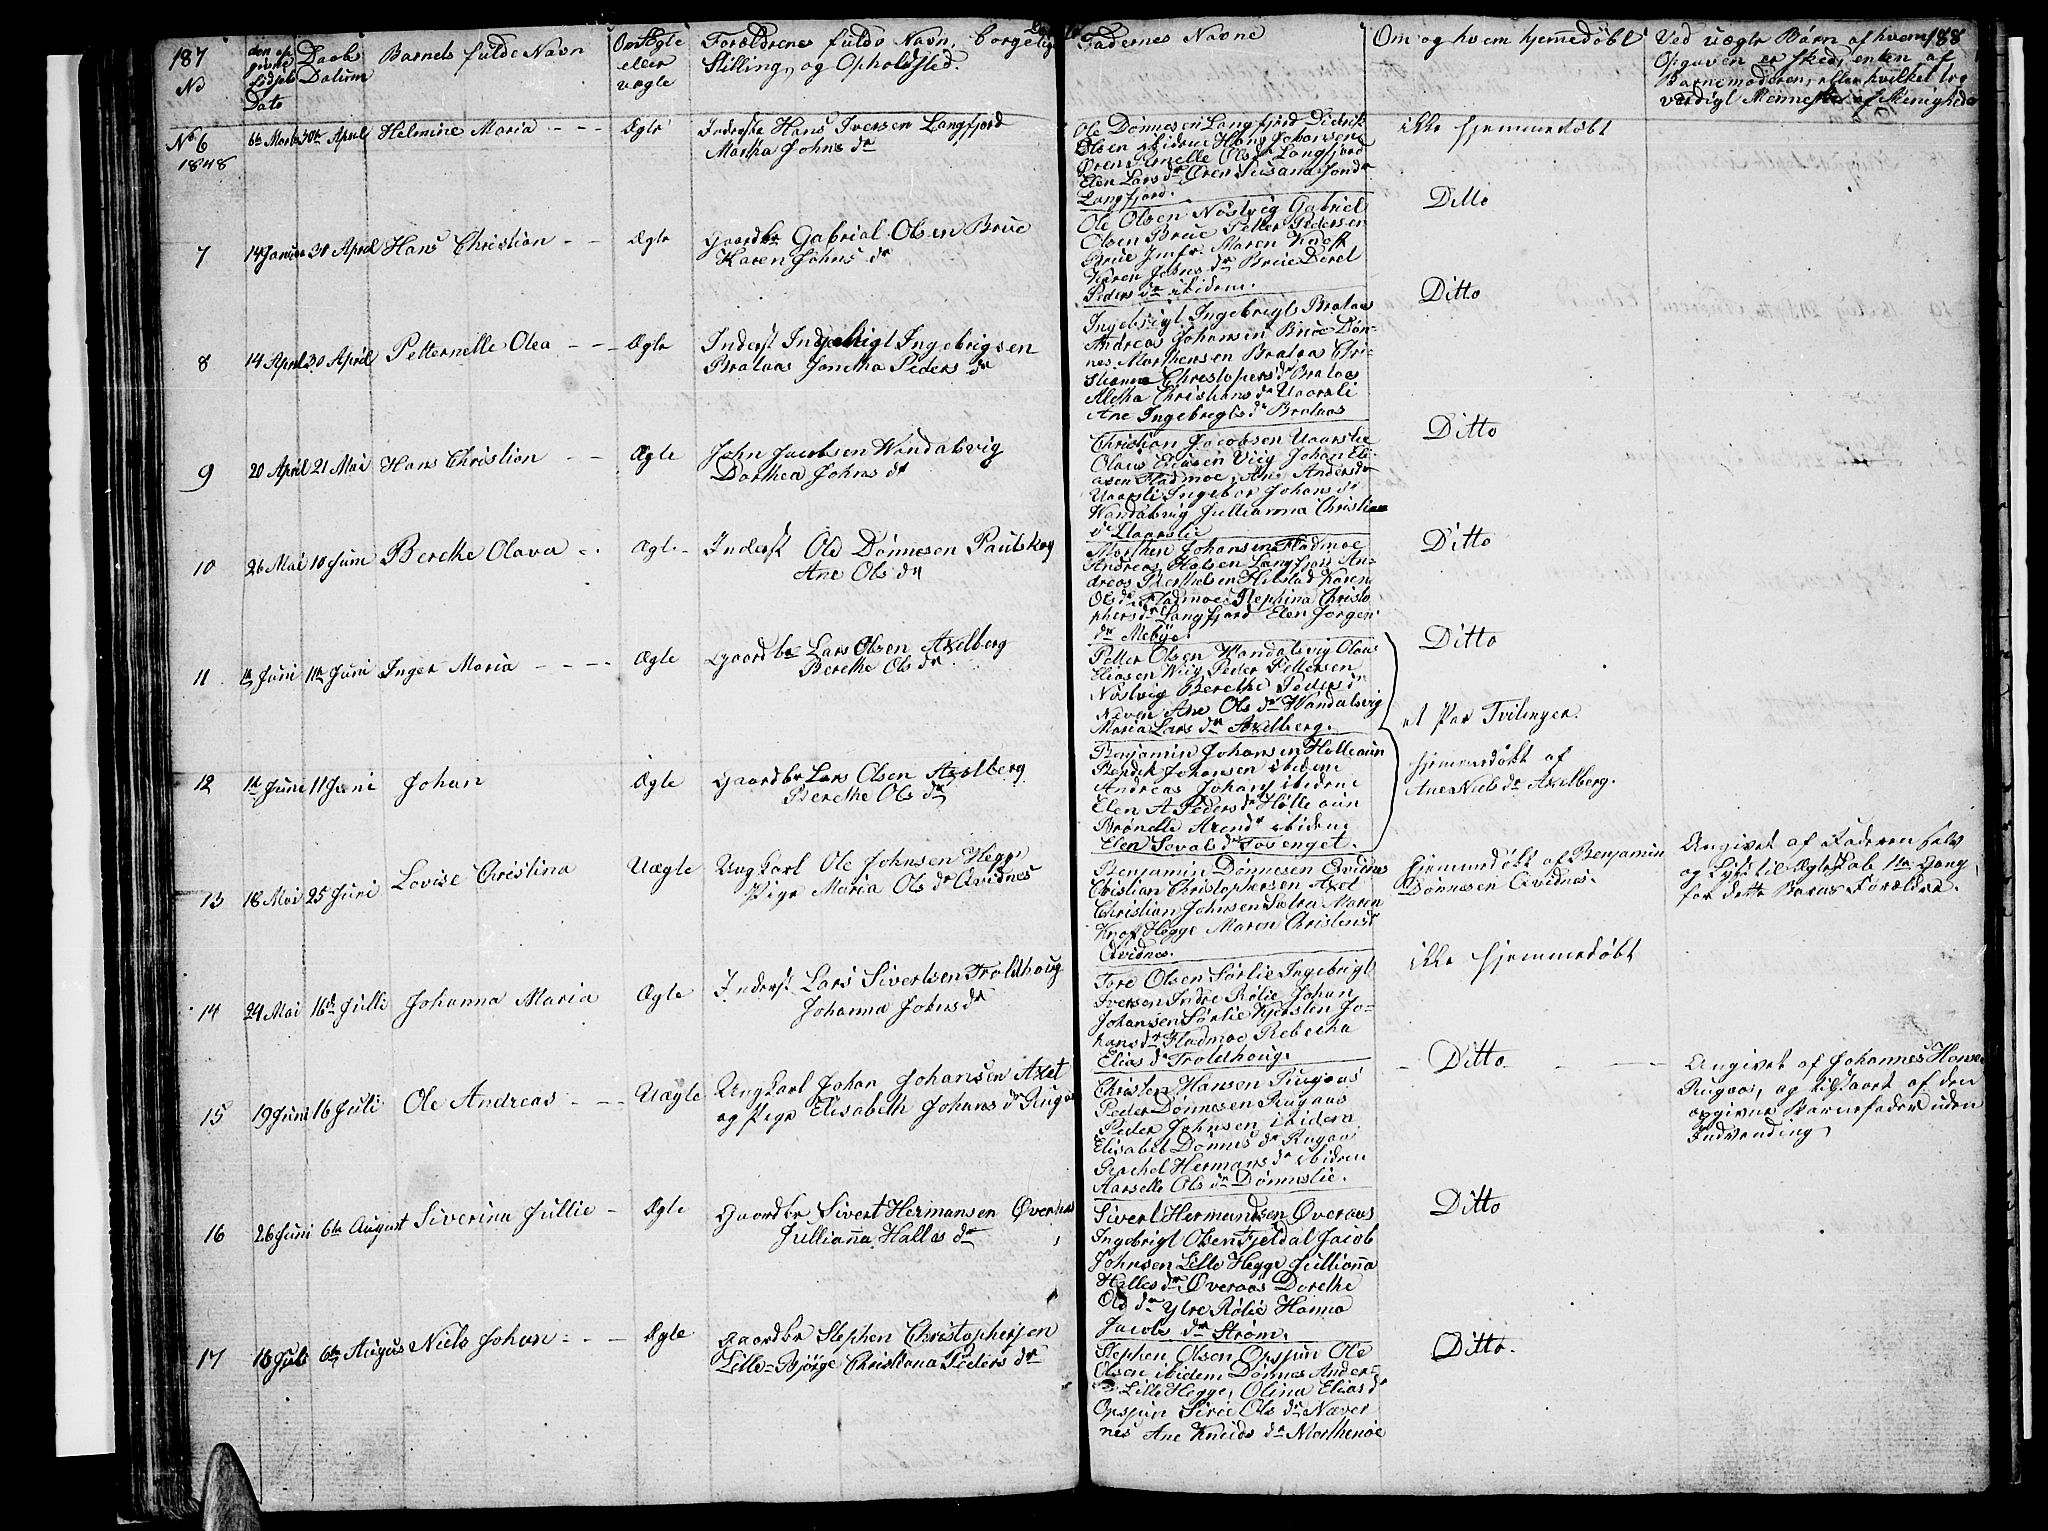 187
No
den op
givne
fødsels
Dato
Daabs
Datum
Barnets fulde Navn
Om Ægte
eller
uægte
Forældrenes fulde Navn, borgelig
Stilling, og Opholdsted.
Fadernes Navne
Om og hvem hjemedøbt
Ved uægte Børn af hvem
Opgaven er skeed, enten af
Barnemoderen, eller hvilket tro
værdigt Menneske af Menigheden
188
No 6
1848
6te Marts 30te April Helmine Maria - - - Ægte
Inderste Hans Iversen Langfjord
Martha Johns dr
Ole Dønnesen Langfjord Didrik
Olsen ibidem Hans Johansen
Øren Pernelle Ols dr Langfjord
Elen Lars dr Øren Susana Jons dr
Langfjord.
ikke hjemmedøbt
7 14 Januar 30 April Hans Christian - - Ægte
Gaardbr Gabrial Olsen Brue
Karen Johns dr
Ole Olsen Nøstvig Gabriel
Olsen Brue Petter Pedersen
Brue Jmfr. Maren Knoff
Karen Johns dr Brue Doret
Peders dr ibidem.
Ditto
8 14 April 30 April Petternelle Olea - - - Ægte
Inderst Ingebrigt Ingebrigsen
Brataas Jonetha Peders dr
Ingebrigt Ingebrigts Brataas
Andreas Johansen Brue Døn-
nes Morthensen Brataas Chri-
stianna Christopers dr Brataas
Aletha Christians dr Uaarsli
Ane Ingebrigts dr Brataas
Ditto
9 20 April 21 Mai Hans Christian - - Ægte
John Jacobsen Wandalsvig
Dorthea Johns dr
Christian Jacobsen Uaarslie
Olaus Eliasen Viig Johan Eli-
asen Fladmoe, Ane Anders dr
Uaarsli Ingebor Johans dr
Wandalsvig Jullianna Christian
dr Uaarslie
Ditto
10 26 Mai 10 Juni Berethe Olava - - Ægte -
Inderst Ole Dønnesen Paulskog
Ane Ols dr
Morthen Johansen Fladmoe
Andreas Olalsen Langfjord An-
dreas Berthelsen Hilstad Karen
Ols dr Fladmoe Stephina Christo
phers dr Langfjord Elen Jørgen
dr Mebye.
Ditto
11 1te Juni 11te Juni Inger Maria - - - - Ægte
Gaardbr Lars Olsen Axelberg
Berethe Ols dr
Petter Olsen Wandalsvig Olaus
Eliasen Wiig Peder Pettersen
Nøstvig Berethe Peders dr
Ane Ols dr Wandalsvig
Maria Lars dr Axelberg.
Ditto
et Par Tvilinger.
12 1te Juni 11 Juni Johan Ægte
Gaardbr Lars Olsen Axelberg
Berethe Ols dr
Benjamin Johansen Holleaun
Bendik Johansen ibidem
Andreas Johans ibidem
Elen A Peders dr Hølleaun
Brønelle Arends dr ibidem
Elen Sevals dr Tovenget.
hjemmedøbt af
Ane Niels dr Axelberg.
13 18 Mai 25 Juni Lovise Christina Uægte
Ungkarl Ole Johnsen Hegge
Pige Maria Ols dr Qvidnes
Benjamin Dønnesen Qvidnes
Cristian Christophersen Axet
Christian Johnsen Sætra Maren
Knof Hegge Maren Christens dr
Qvidnes.
hjemmedøbt af Benjamin
Dønnesen Qvidnes.
Angivet af Faderen selv
og Lyst til Ægteskab 1te Gang
for dette Barns Forældre.
14 24 Mai 16de Julli Johanna Maria Ægte
Inderst Lars Sivertsen Troldhoug
Johanna Johns dr
Tore Olsen Sørlie Ingebrigt
Iversen Indre Rølie Johan
Johansen Sørlie Kjersten Jo-
hans dr Fladmoe Rebecka
Elias dr Troldhoug.
ikke hjemmedøbt
15 19 Juni 16 Juli Ole Andreas - - - Uægte
Ungkarl Johan Johansen Axet
og Pige Elisabeth Johans dr Rugaas
Christen Hansen Rugaas
Peder Dønnesen Rugaas
Peder Johnsen ibidem
Elisabet Dønnes dr Rugaas
Rachel Hermans dr ibidem
Aarselle Ols dr Dønneslie.
- Ditto -
Angivet af Johannes Hansen
Rugaas, og tilstaaet af den
opgivne Barnefader uden
Indvending
16 26 Juni 6te August Siverina Jullie - Ægte
Gaardbr Sivert Hermansen Øveraas
Jullianna Halles dr
Sivert Hermandsen Øveraas
Ingebrigt Olsen Fjeldal Jacob
Johnsen Lille Hegge Jullianna
Halles dr Øveraas Dorethe
Ols dr Ytre Rølie Hanna
Jacobs dr Strøm.
Ditto
17 16 Juli 6te Augus Niels Johan - - - Ægte
Gaardbr Stephen Christophersen
Lille-Bjørge Christiana Peders dr
Stephen Olsen Opsjøn Ole
Olsen ibidem Dønnes Anders
Lille Hegge, Olina Elias dr
Opsjøn Siriè Ols dr Næver
nes Ane Kneids dr Morthenøe
Ditto.